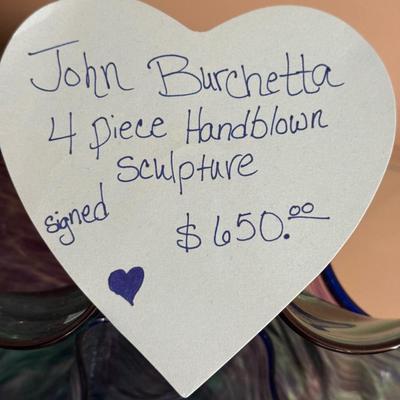 John Burchetta
4 piece Handblown
Sculpture
signed
$650.00